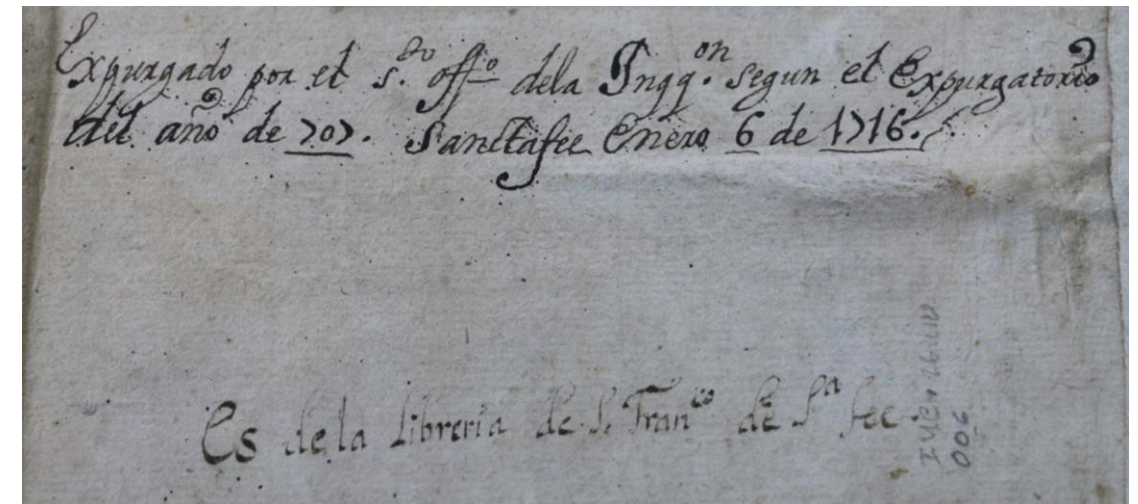 Expurgado por el s.to offo dela Ingq.on segun el Expurgatorio
del año de 707. Sanctafee Enero 6 de 1716.
Es de la Libreria de S. Franco de Sa fee
006